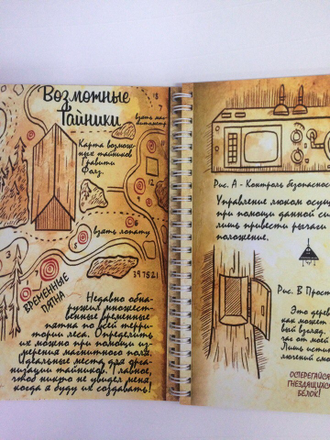 Возможные
Тайники
Карта возмож-
ных тайников
Гравити
Фолз.
взять маг-
нитометр
взять лопату
ВРЕМЕННЫЕ
ПЯТНА
397521
Недавно обна-
ружил множест-
венные временные
пятна по всей терри-
тории леса. Определить
их можно при помощи из-
мерения магнитного поля.
Идеальные места для ор-
ганизации тайников. Главное,
чтоб никто не увидел меня,
когда я буду их создавать!
Рис. А - Контроль безопаснос
Управление люком осущ
при помощи данной си
лишь привести рычаги
положение.
Рис. В Прост
Это дерев
как может
вый взгляд,
час от моей
Лишь исты
лючений смо
ОСТЕРЕГАЙСЯ
ГНЕЗДЯЩИХС
БЕЛОК!